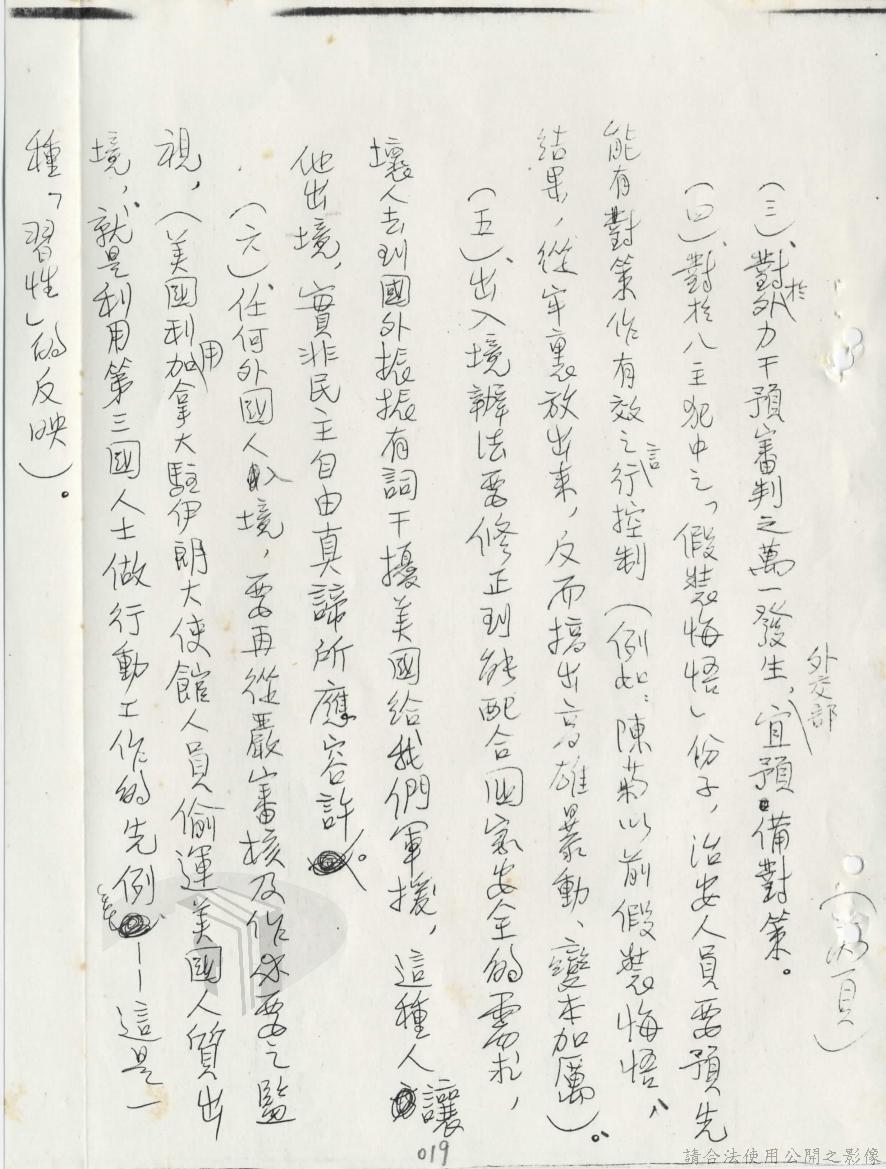 (三)、對於外力干預審判之萬一發生，外交部宜預備對策。
(四)、對於八主犯中之「假裝悔悟」份子，治安人員要預先
能有對策作有效之言行控制(例如：陳菊以前假裝悔悟，
結果，從牢裏放出來，反而搞出高雄暴動、變本加厲)。
(五)、出入境辦法要修正到能配合國家安全的需求，
壞人去到國外振振有詞干擾美國給我們軍援，這種人讓
他出境，實非民主自由真諦所應容許。
(六)、任何外國人入境，要再從嚴審核及作必要之監
視，(美國利用加拿大駐伊朗大使館人員偷運美國人質出
境，就是利用第三國人士做行動工作的先例——這是一
種「習性」的反映)。
019
請合法使用公開之影像